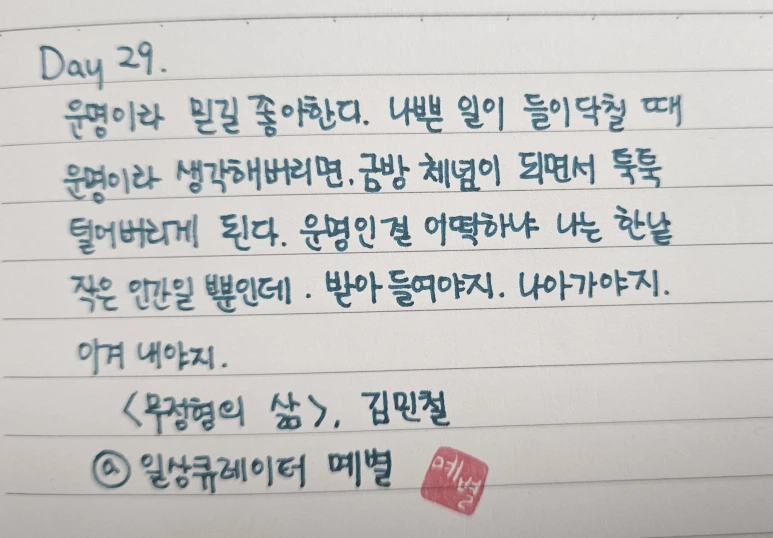 Day 29.
운명이라 믿길 좋아한다. 나쁜 일이 들이닥칠 때
운명이라 생각해버리면, 금방 체념이 되면서 툭툭
털어버리게 된다. 운명인걸 어떡하냐 나는 한낱
작은 인간일 뿐인데. 받아 들여야지. 나아가야지.
이겨 내야지.
<무정형의 삶>, 김민철
@ 일상큐레이터 예별
예별